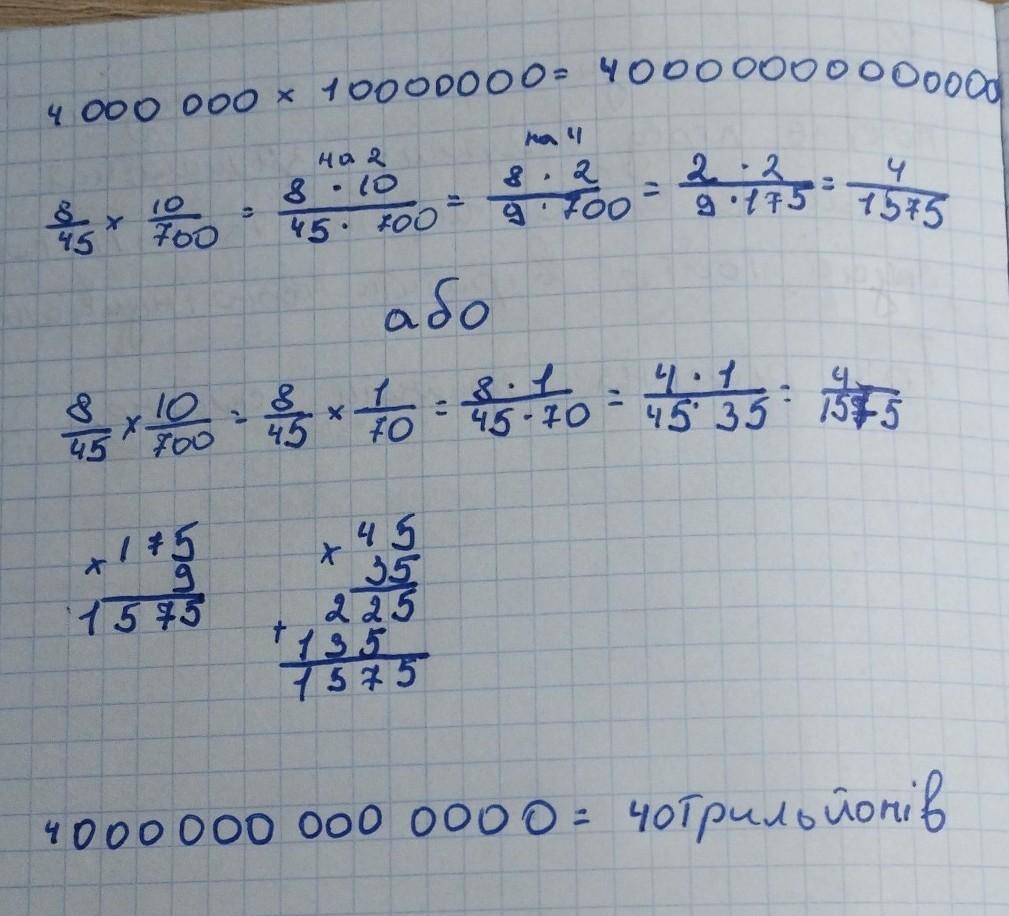 4 000 000 × 10000000= 40000000000000
на 2 на 4
8/45 × 10/700 = 8 · 10/45 · 700 = 8 · 2/9 · 700 = 2 · 2/9 · 175 = 4/1575
або
8/45 × 10/700 = 8/45 × 1/70 = 8 · 1/45 · 70 = 4 · 1/45 · 35 = 4/1575
× 175 × 45
9 35
1575 225
+ 135
1575
4000 000 000 0000 = 40трильйонів